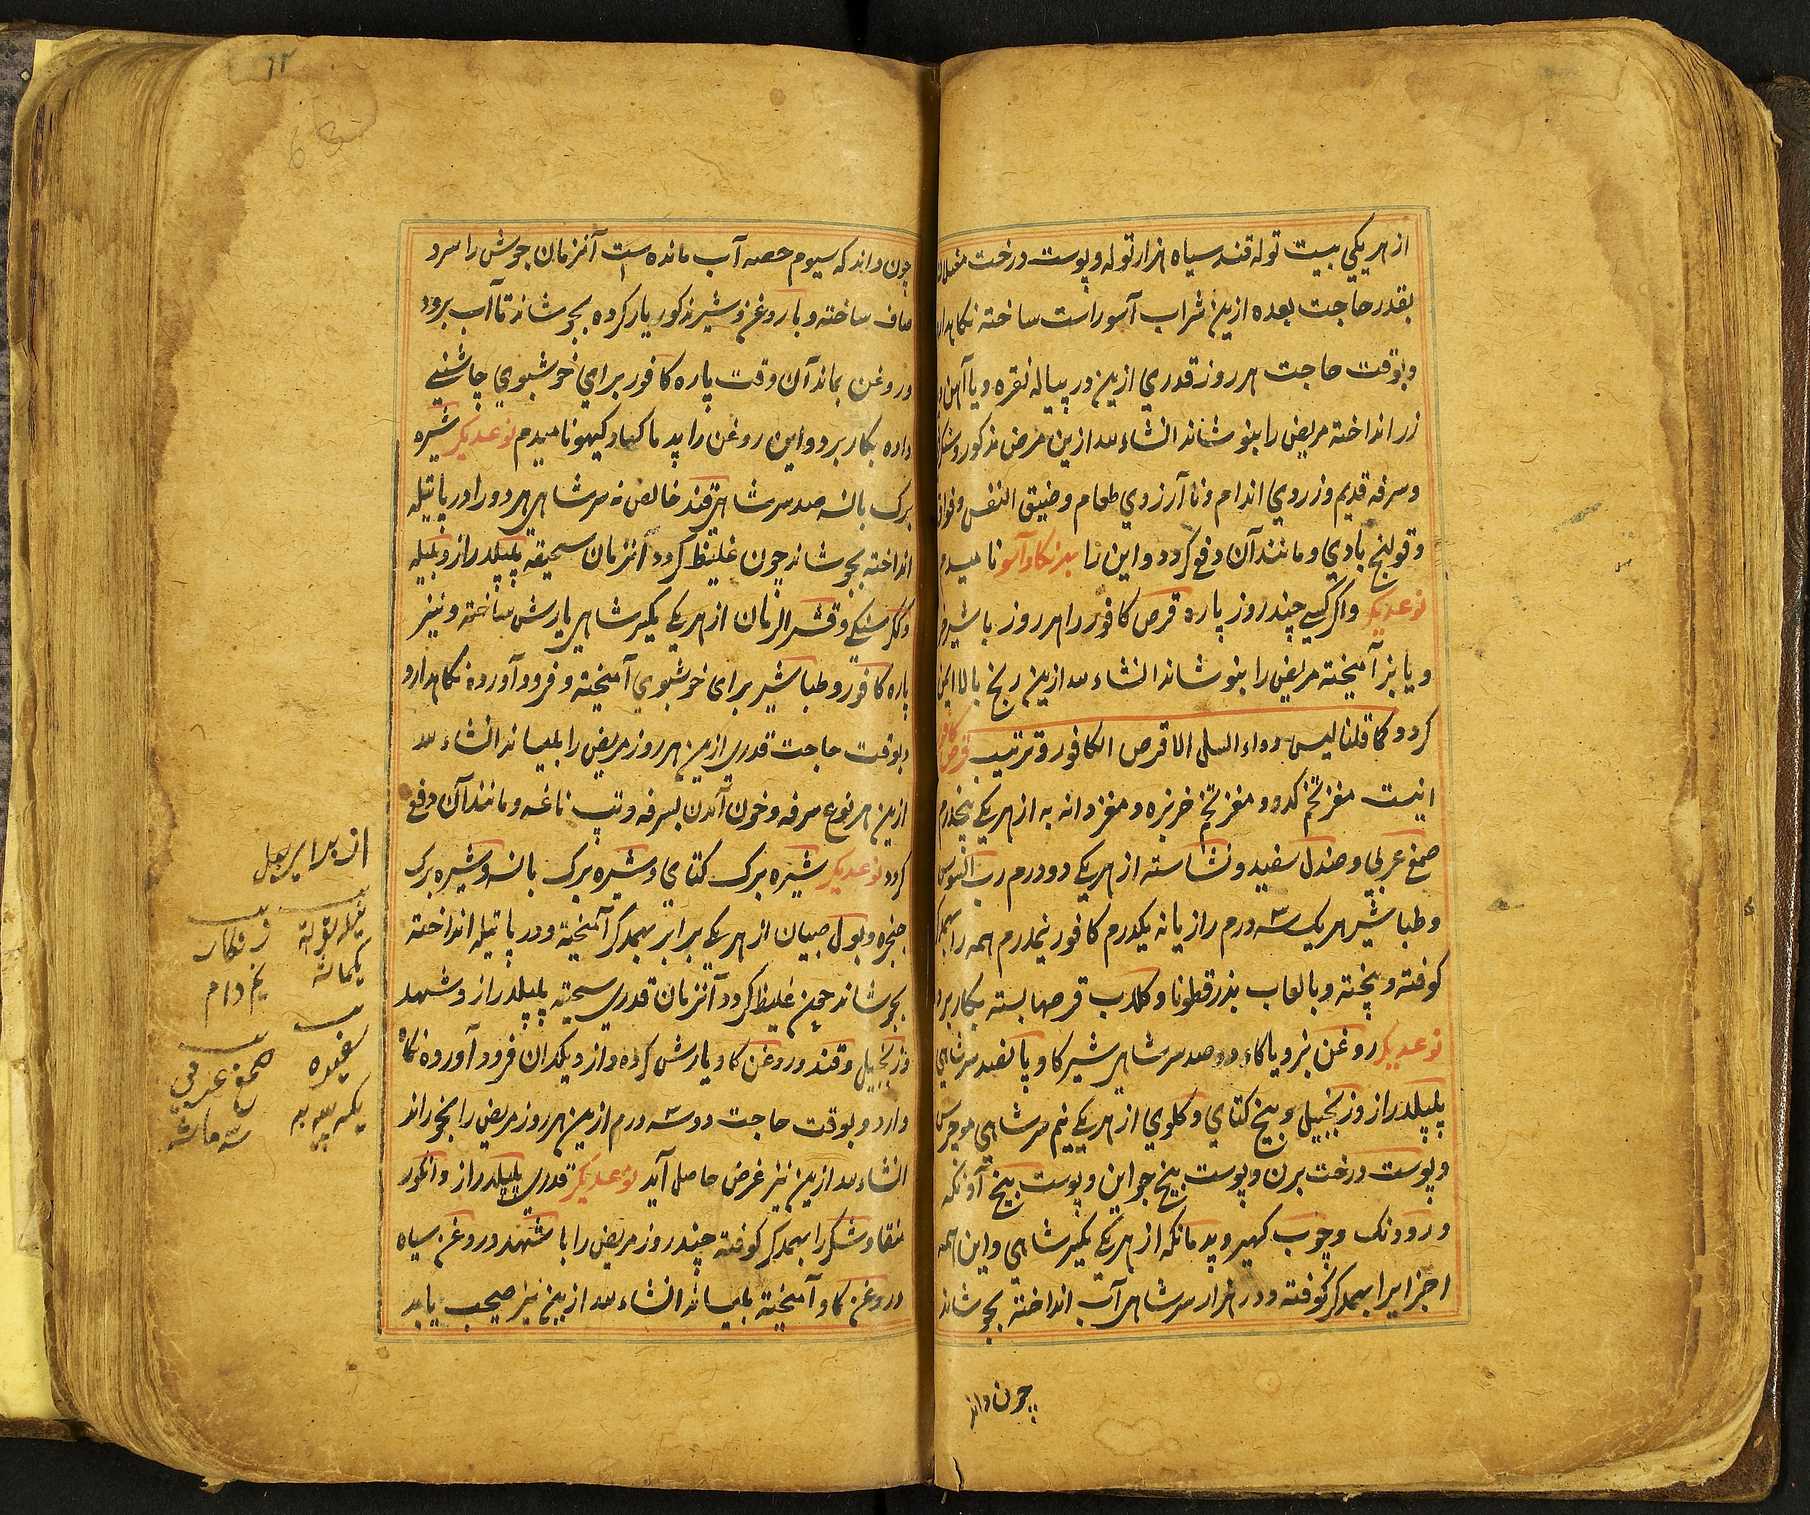 از هریکي بیست توله قند سیاه هزار توله و پوست درخت مغیلان
بقدر حاجت بعده ازین شراب آسو راست ساخته نکاهدارد
و بوقت حاجت هر روز قدري ازین در پیاله نقره و یا آهن و
زر انداخته مریض را بنوشاند انشاء الله ازین مرض مذکور و
و سرفه قدیم و زردي اندام و نا آرزوي طعام و ضیق النفس و فواق
و قولنج بادي و مانند آن دفع کردد و این را نامیدم
نوعدیکر و اکر کسے چند روز پاره قرص کافور را هر روز با شیر
و یا بز آمیخته مریض را بنوشاند انشاء الله ازین رنج بالا ایمن
کردد کما قلنا لیس دواء السل الا قرص الکافور و ترتیب قرص کافور
اینست مغز تخم کدو و مغز تخم خربزه و مغز دانه به از هریکے پنجدرم
صمغ عربي و صندل سفید و نشاسته از هریکے دو درم رب السوس
و طباشیر هریک سه درم رازیانه یکدرم کافور نیمدرم همه را بهم
کوفته و پخته و بالعاب بذرقطونا و کلاب قرصها بسته بکار برد
نوعدیکر روغن بز و یا کاء دو صد سرشاهي شیر کاو پانصد سرشاهي
پلپلدراز و زنجبیل و بیخ کتاي و کلوي از هریکے نیم سرشاهي
و پوست درخت برن و پوست بیخ جو این و پوست بیخ
و رودنک و چوب کهیر و پدمانکه از هریکے یکسرشاهي و این همه
اجزا یرا بهمدکر کوفته و در هزار سرشاهي آب انداخته بجوشاند
چون داند
چون داند که سیوم حصه آب مانده است آنزمان جوش را سرد
صاف ساخته و با روغن و شیر مذکور یار کرده بجوشاند تا آب برود
و روغن بماند آن وقت پاره کافور براي خوشبوي چاشنے
داده بکار برد و این روغن را نامیدم نوعدیکر شیره
برک بانسه صد سرشاهي قند خالص نه سرشاهي هر دو را در پاتیله
انداخته بجوشاند چون غلیظ کردد آنزمان سحیقه پلپلدراز و
و قشر الرمان از هریکے یکسرشاهي یارش ساخته و نیز
پاره کافور و طباشیر براي خوشبوي آمیخته و فرود آورده نکاهدارد
و بوقت حاجت قدري ازین هر روز مریض را بلیساند انشاء الله
ازین هر نوع سرفه و خون آمدن بسرفه و تپ ناغه و مانند آن دفع
کردد نوعدیکر شیره برک کتاي و شیره برک بانسه و شیره برک
و بول صبیان از هریکے برابر بهمدکر آمیخته و در پاتیله انداخته
بجوشاند چون غلیظ کردد آنزمان قدري سحیقه پلپلدراز و شهد
و زنجبیل و قند و روغن کاو یارش کرده و از دیکدان فرود آورده نکاه
دارد و بوقت حاجت دو سه درم ازین هر روز مریض را بخوراند
انشاء الله ازین نیز غرض حاصل آید نوعدیکر قدري پلپلدراز و انکور
منقا و شکر را بهمدکر کوفته چند روز مریض را با شهد و روغن سیاه
و روغن کاو آمیخته بلیساند انشاء الله ازین نیز صحت یابد
یکماشه
نیم دام
سفیده
صمغ عربي
سه ماشه